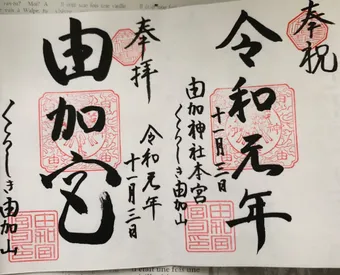 奉祝
令和元年
十一月三日
由加神社本宮
くらしき由加山
奉拝
令和元年
十一月三日
由加宮
くらしき由加山